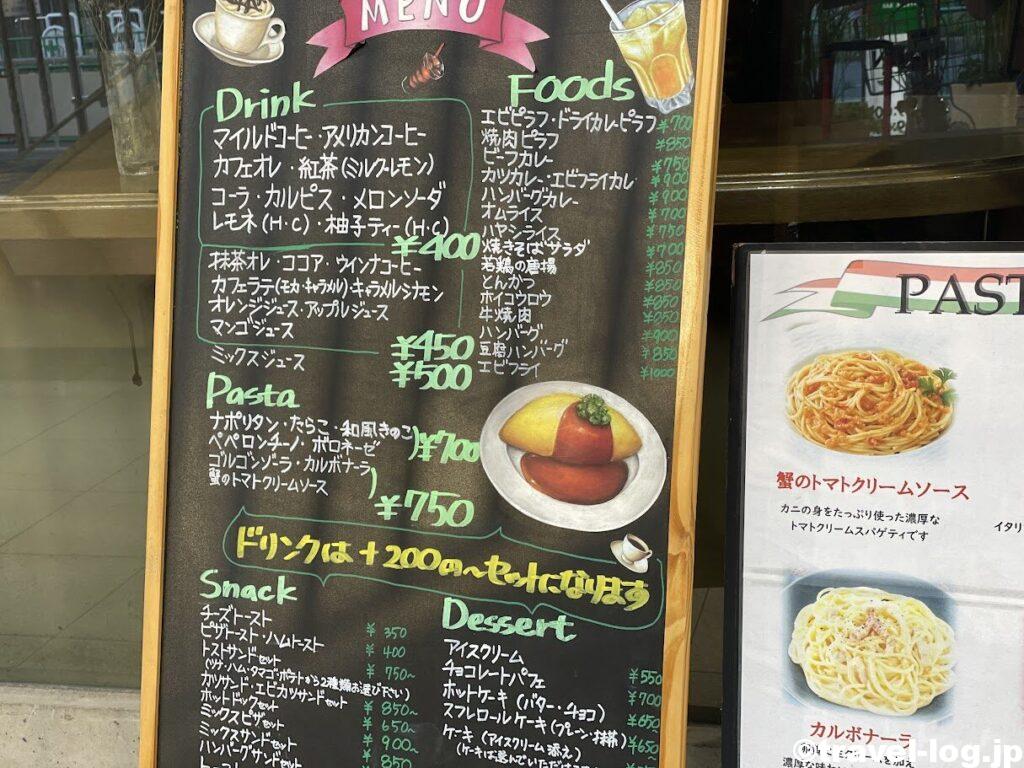 MENU
Drink
マイルドコーヒー・アメリカンコーヒー
カフェオレ・紅茶(ミルク・レモン)
コーラ・カルピス・メロンソーダ
レモネ(H・C)・柚子ティー(H・C)
¥400
抹茶オレ・ココア・ウインナコーヒー
カフェラテ(モカ・キャラメル)キャラメルシナモン
オレンジジュース・アップルジュース
マンゴジュース
¥450
ミックスジュース ¥500
Pasta
ナポリタン・たらこ・和風きのこ
ペペロンチーノ・ボロネーゼ
)¥700
ゴルゴンゾーラ・カルボナーラ
蟹のトマトクリームソース
)
¥750
Foods
エビピラフ・ドライカレーピラフ ¥700
焼肉ピラフ ¥850
ビーフカレー ¥750
カツカレー・エビフライカレ ¥900
ハンバーグカレー ¥900
オムライス ¥700
ハヤシライス ¥750
焼きそばサラダ ¥700
若鶏の唐揚 ¥850
とんかつ ¥850
ホイコウロウ ¥850
牛焼肉 ¥850
ハンバーグ ¥900
豆腐ハンバーグ ¥850
エビフライ ¥1000
ドリンクは+200の〜セットになります
Snack
チーズトースト ¥350
ピザトースト・ハムトースト ¥400
トストサンドセット ¥750~
(ツナ・ハム・タマゴ・ポテトから2種類お選び下さい)
カツサンド・エビカツサンドセット ¥850~
ホットドッグセット ¥650~
ミックスピザセット ¥900~
ミックスサンドセット ¥850
ハンバーグサンドセット
Dessert
アイスクリーム ¥550
チョコレートパフェ ¥700
ホットケーキ(バター・チョコ) ¥650
スフレロールケーキ(プレーン・抹茶) ¥650
ケーキ(アイスクリーム添え)
(ケーキは選んでいただけます
PAST
蟹のトマトクリームソース
カニの身をたっぷり使った濃厚な
トマトクリームスパゲティです
イタリ
カルボナーラ
濃厚な味わ
travel-log.jp